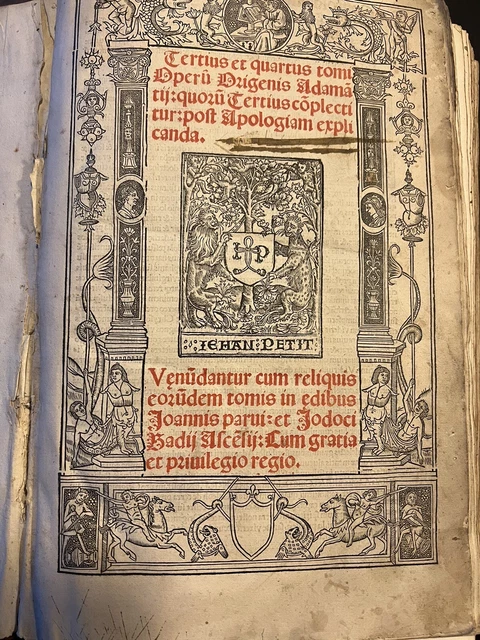 Tertius et quartus tomi
Operū Origenis Adamā
tij: quorū Tertius cōplecti
tur: post Apologiam expli
canda.
IEHAN: PETIT
Venūdantur cum reliquis
eorūdem tomis in edibus
Joannis parui: et Jodoci
Badij Ascēsij: Cum gratia
et priuilegio regio.